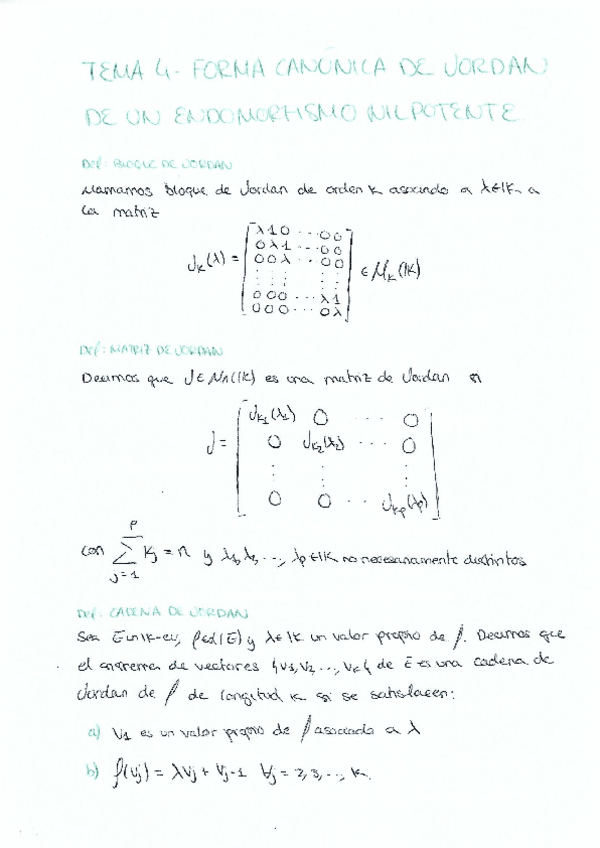 TEMA 4.- FORMA CANÓNICA DE JORDAN
DE UN ENDOMORFISMO NILPOTENTE.
Def: BLOQUE DE JORDAN
Llamamos bloque de Jordan de orden k asociado a λ∈K a
la matriz
J_k(λ) = [ λ 1 0 ··· 0 0
0 λ 1 ··· 0 0
0 0 λ ··· 0 0
⋮ ⋮ ⋮ ⋮ ⋮
0 0 0 ··· λ 1
0 0 0 ··· 0 λ ] ∈ M_k(K)
Def: MATRIZ DE JORDAN
Decimos que J∈M_n(K) es una matriz de Jordan si
J = [ J_k1(λ1) 0 ··· 0
0 J_k2(λ2) ··· 0
⋮ ⋮ ⋮
0 0 ··· J_kp(λp) ]
con ∑_{j=1}^{p} k_j = n y λ1, λ2, ..., λp ∈ K no necesariamente distintos
Def: CADENA DE JORDAN
Sea E un K-ev, f∈L(E) y λ∈K un valor propio de f. Decimos que
el sistema de vectores {v1, v2, ..., vk} de E es una cadena de
Jordan de f de longitud k si se satisfacen:
a) v1 es un valor propio de f asociado a λ
b) f(vj) = λvj + vj-1 ∀j = 2, 3, ..., k.